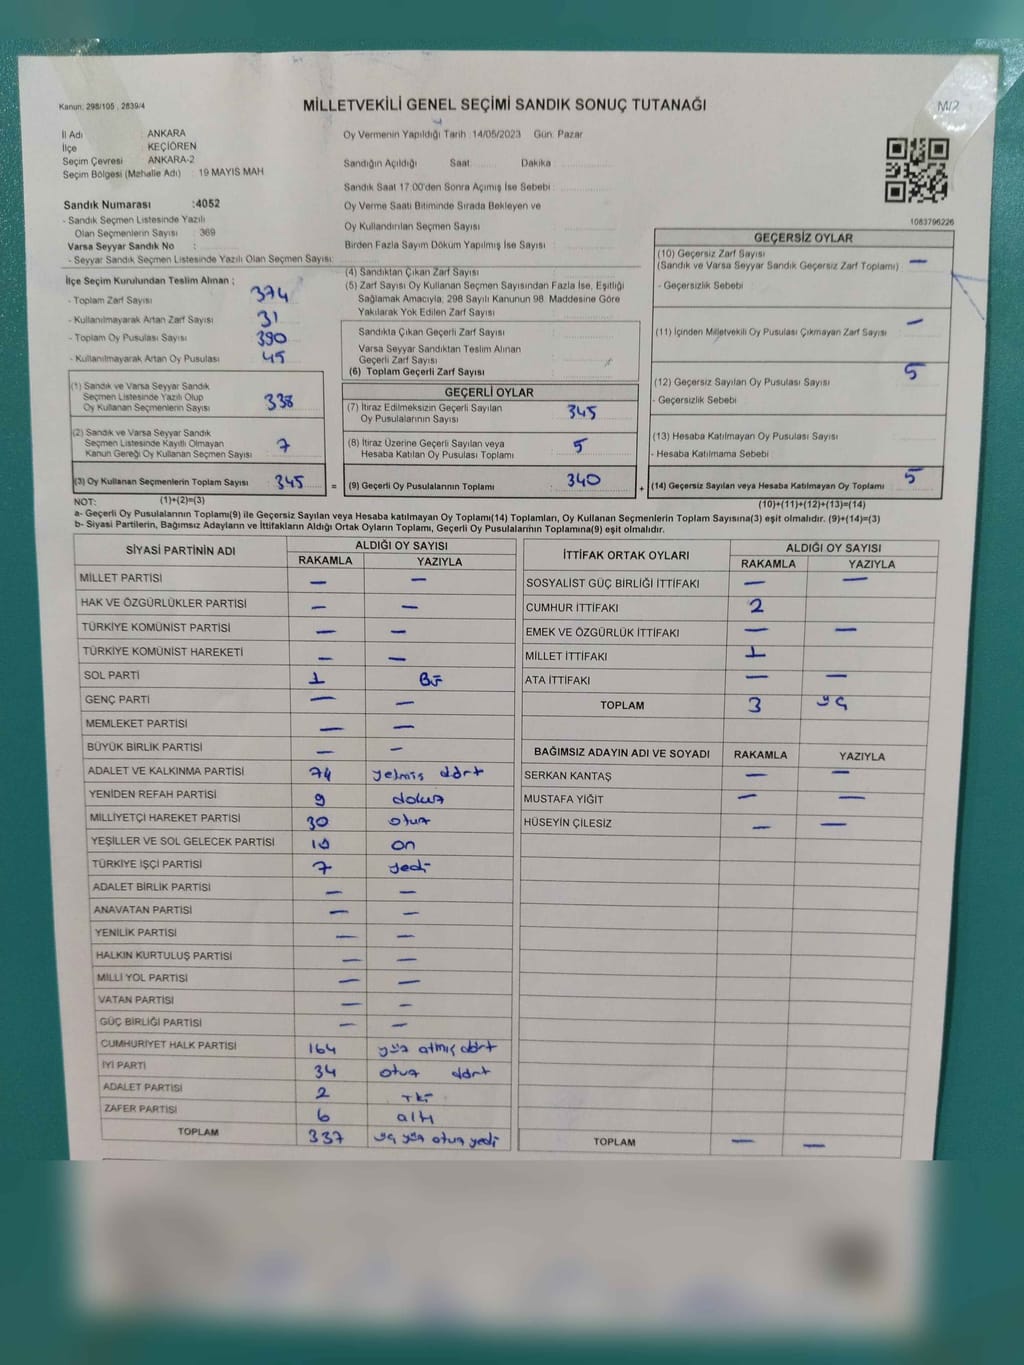 Kanun: 298/105 , 2839/4
MİLLETVEKİLİ GENEL SEÇİMİ SANDIK SONUÇ TUTANAĞI
M/2
İl Adı : ANKARA
İlçe : KEÇİÖREN
Seçim Çevresi : ANKARA-2
Seçim Bölgesi (Mahalle Adı) : 19 MAYIS MAH
Sandık Numarası :4052
- Sandık Seçmen Listesinde Yazılı
Olan Seçmenlerin Sayısı : 369
Varsa Seyyar Sandık No :
- Seyyar Sandık Seçmen Listesinde Yazılı Olan Seçmen Sayısı:
Oy Vermenin Yapıldığı Tarih : 14/05/2023 Gün: Pazar
Sandığın Açıldığı Saat: Dakika:
Sandık Saat 17.00'den Sonra Açılmış İse Sebebi :
Oy Verme Saati Bitiminde Sırada Bekleyen ve
Oy Kullandırılan Seçmen Sayısı :
Birden Fazla Sayım Döküm Yapılmış İse Sayısı :
1083796226
İlçe Seçim Kurulundan Teslim Alınan ;
- Toplam Zarf Sayısı : 374
- Kullanılmayarak Artan Zarf Sayısı : 31
- Toplam Oy Pusulası Sayısı : 390
- Kullanılmayarak Artan Oy Pusulası : 45
(1) Sandık ve Varsa Seyyar Sandık
Seçmen Listesinde Yazılı Olup
Oy Kullanan Seçmenlerin Sayısı : 338
(2) Sandık ve Varsa Seyyar Sandık
Seçmen Listesinde Kayıtlı Olmayan
Kanun Gereği Oy Kullanan Seçmen Sayısı : 7
(3) Oy Kullanan Seçmenlerin Toplam Sayısı : 345
(4) Sandıktan Çıkan Zarf Sayısı :
(5) Zarf Sayısı Oy Kullanan Seçmen Sayısından Fazla İse, Eşitliği
Sağlamak Amacıyla; 298 Sayılı Kanunun 98. Maddesine Göre
Yakılarak Yok Edilen Zarf Sayısı :
Sandıkta Çıkan Geçerli Zarf Sayısı :
Varsa Seyyar Sandıktan Teslim Alınan
Geçerli Zarf Sayısı :
(6) Toplam Geçerli Zarf Sayısı :
GEÇERLİ OYLAR
(7) İtiraz Edilmeksizin Geçerli Sayılan
Oy Pusulalarının Sayısı : 345
(8) İtiraz Üzerine Geçerli Sayılan veya
Hesaba Katılan Oy Pusulası Toplamı : 5
= (9) Geçerli Oy Pusulalarının Toplamı : 340
GEÇERSİZ OYLAR
(10) Geçersiz Zarf Sayısı
(Sandık ve Varsa Seyyar Sandık Geçersiz Zarf Toplamı) : —
- Geçersizlik Sebebi :
(11) İçinden Milletvekili Oy Pusulası Çıkmayan Zarf Sayısı : —
(12) Geçersiz Sayılan Oy Pusulası Sayısı : 5
- Geçersizlik Sebebi :
(13) Hesaba Katılmayan Oy Pusulası Sayısı :
- Hesaba Katılmama Sebebi :
+ (14) Geçersiz Sayılan veya Hesaba Katılmayan Oy Toplamı : 5
NOT: (1)+(2)=(3)
(10)+(11)+(12)+(13)=(14)
a- Geçerli Oy Pusulalarının Toplamı(9) ile Geçersiz Sayılan veya Hesaba katılmayan Oy Toplamı(14) Toplamları, Oy Kullanan Seçmenlerin Toplam Sayısına(3) eşit olmalıdır. (9)+(14)=(3)
b- Siyasi Partilerin, Bağımsız Adayların ve İttifakların Aldığı Ortak Oyların Toplamı, Geçerli Oy Pusulalarının Toplamına(9) eşit olmalıdır.
SİYASİ PARTİNİN ADI
ALDIĞI OY SAYISI
RAKAMLA YAZIYLA
MİLLET PARTİSİ — —
HAK VE ÖZGÜRLÜKLER PARTİSİ — —
TÜRKİYE KOMÜNİST PARTİSİ — —
TÜRKİYE KOMÜNİST HAREKETİ — —
SOL PARTİ 1 Bir
GENÇ PARTİ — —
MEMLEKET PARTİSİ — —
BÜYÜK BİRLİK PARTİSİ — —
ADALET VE KALKINMA PARTİSİ 74 yetmiş dört
YENİDEN REFAH PARTİSİ 9 dokuz
MİLLİYETÇİ HAREKET PARTİSİ 30 otuz
YEŞİLLER VE SOL GELECEK PARTİSİ 10 on
TÜRKİYE İŞÇİ PARTİSİ 7 yedi
ADALET BİRLİK PARTİSİ — —
ANAVATAN PARTİSİ — —
YENİLİK PARTİSİ — —
HALKIN KURTULUŞ PARTİSİ — —
MİLLİ YOL PARTİSİ — —
VATAN PARTİSİ — —
GÜÇ BİRLİĞİ PARTİSİ — —
CUMHURİYET HALK PARTİSİ 164 yüz atmış dört
İYİ PARTİ 34 otuz dört
ADALET PARTİSİ 2 iki
ZAFER PARTİSİ 6 altı
TOPLAM 337 üç yüz otuz yedi
İTTİFAK ORTAK OYLARI
ALDIĞI OY SAYISI
RAKAMLA YAZIYLA
SOSYALİST GÜÇ BİRLİĞİ İTTİFAKI — —
CUMHUR İTTİFAKI 2
EMEK VE ÖZGÜRLÜK İTTİFAKI — —
MİLLET İTTİFAKI 1
ATA İTTİFAKI — —
TOPLAM 3 üç
BAĞIMSIZ ADAYIN ADI VE SOYADI RAKAMLA YAZIYLA
SERKAN KANTAŞ — —
MUSTAFA YİĞİT — —
HÜSEYİN ÇİLESİZ — —
TOPLAM — —